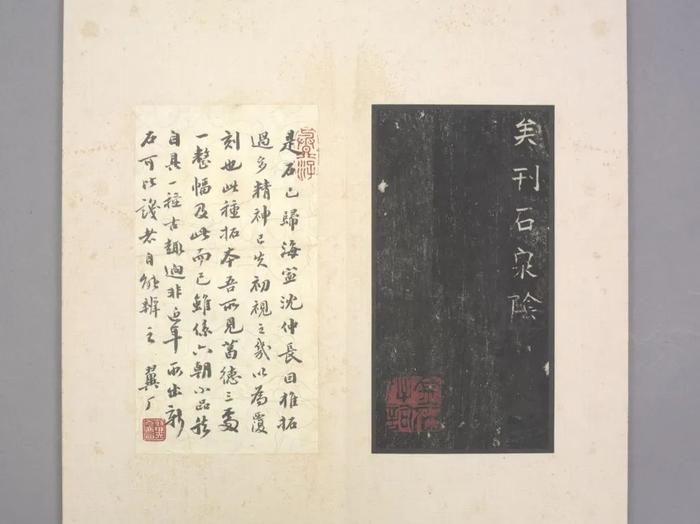 矣刊石泉陰
是石已歸海寧沈仲長因椎拓
過多精神已失初視之幾以為覆
刻也此種拓本吾所見葛德三處
一整幅及此而已雖係六朝小品然
自具一種古趣迥非近年所出新
石可比識者自能辨之 翼厂